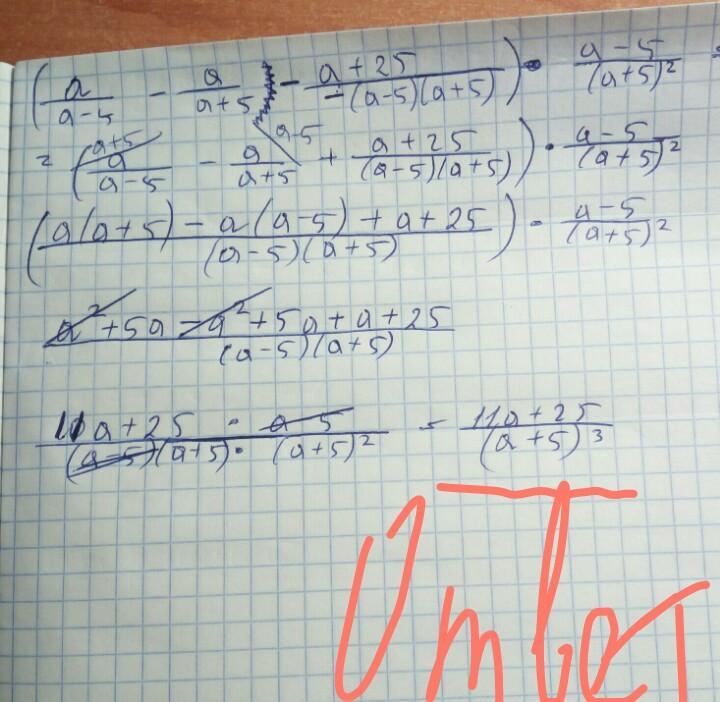 (a/(a-5) - a/(a+5) - (a+25)/(-(a-5)(a+5))) · (a-5)/(a+5)² =
= (a/(a-5) - a/(a+5) + (a+25)/((a-5)(a+5))) · (a-5)/(a+5)²
a+5 a-5
((a(a+5) - a(a-5) + a+25)/((a-5)(a+5))) · (a-5)/(a+5)²
(a²+5a-a²+5a+a+25)/((a-5)(a+5))
(11a+25)/((a-5)(a+5)) · (a-5)/(a+5)² = (11a+25)/(a+5)³
Ответ